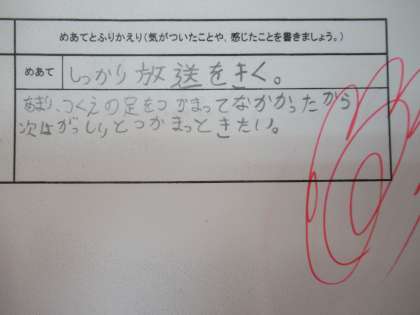 めあてとふりかえり(気がついたことや、感じたことを書きましょう。)
めあて しっかり放送をきく。
あまり、つくえの足をつかまってなかかったから
次はがっしりとつかまっときたい。